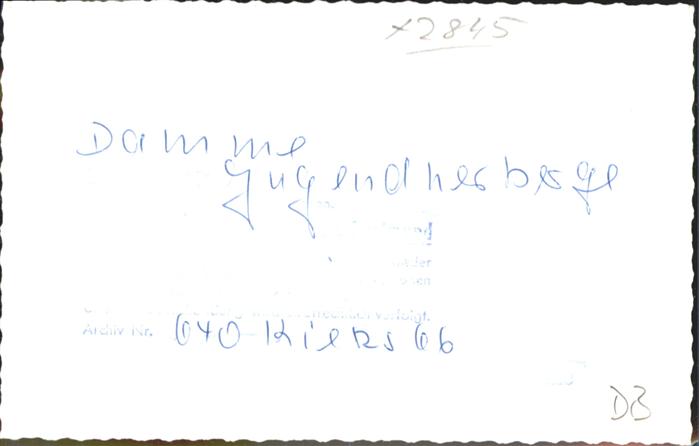 x2845
Damme
Jugendherberge
verfolgt.
Archiv Nr. 640-Kieks 66
DB